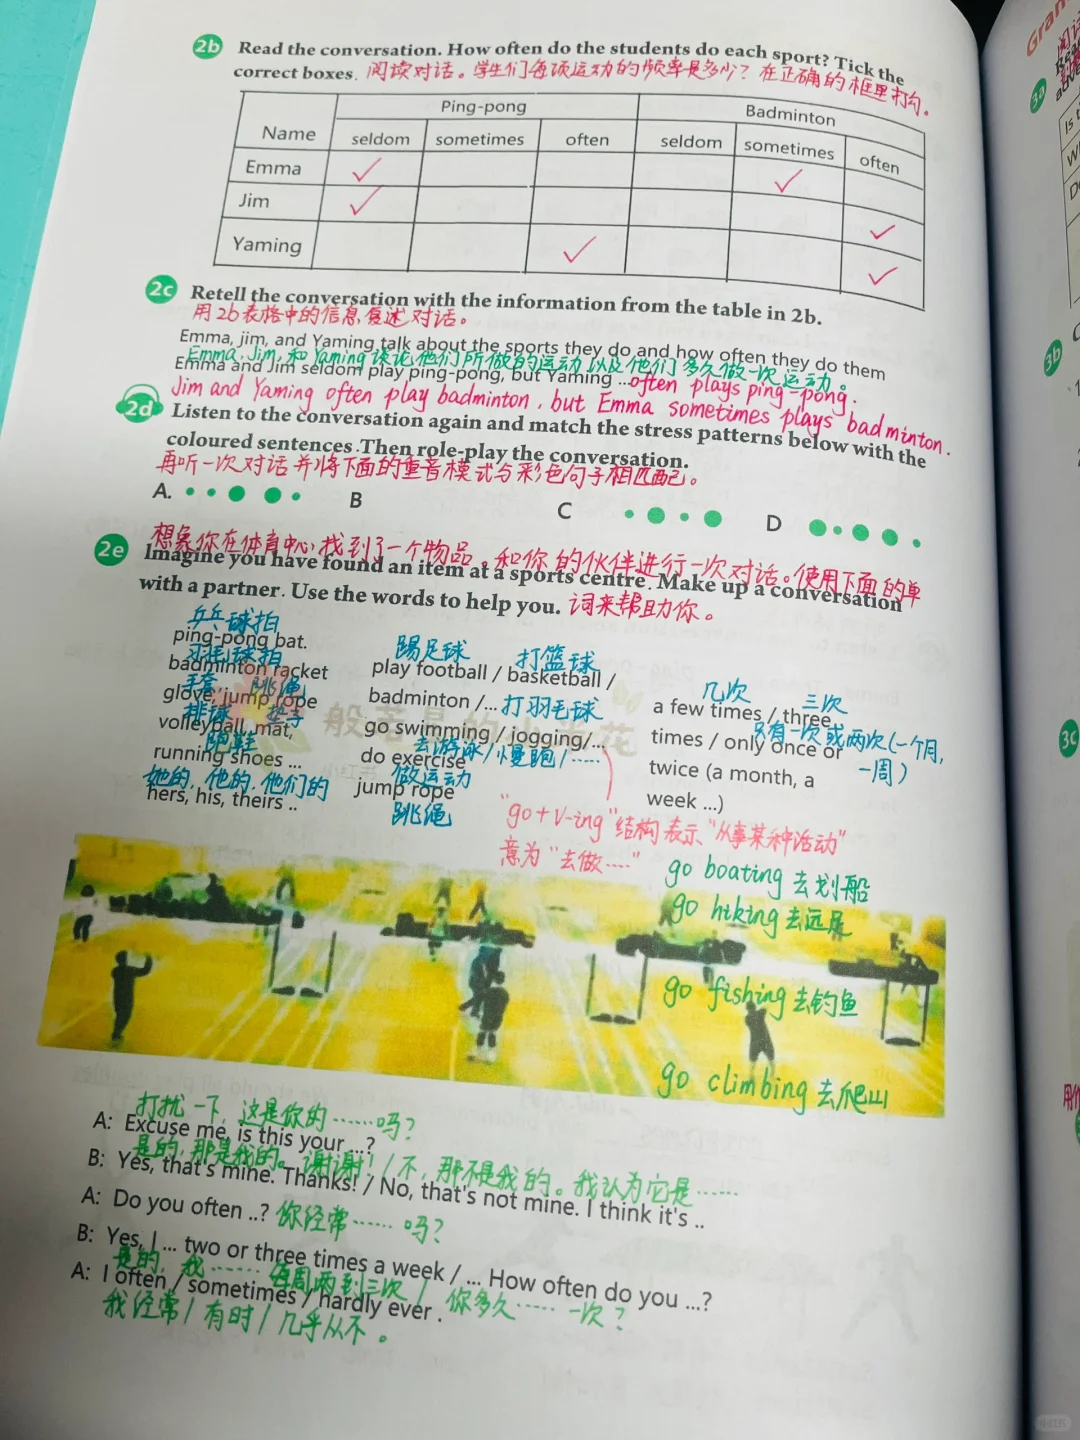 2b Read the conversation. How often do the students do each sport? Tick the
correct boxes. 阅读对话。学生们每项运动的频率是多少？在正确的框里打勾。
Name Ping-pong Badminton
seldom sometimes often seldom sometimes often
Emma ✓ ✓
Jim ✓ ✓
Yaming ✓ ✓
2c Retell the conversation with the information from the table in 2b.
用2b表格中的信息复述对话。
Emma, jim, and Yaming talk about the sports they do and how often they do them
Emma, Jim, 和Yaming谈论他们所做的运动以及他们多久做一次运动。
Emma and Jim seldom play ping-pong, but Yaming ...often plays ping-pong.
Jim and Yaming often play badminton, but Emma sometimes plays badminton.
2d Listen to the conversation again and match the stress patterns below with the
coloured sentences .Then role-play the conversation.
再听一次对话并将下面的重音模式与彩色句子相匹配。
A. B C D
想象你在体育中心找到了一个物品。和你的伙伴进行一次对话。使用下面的单
2e Imagine you have found an item at a sports centre. Make up a conversation
with a partner. Use the words to help you. 词来帮助你。
乒乓球拍
ping-pong bat.
羽毛球拍
badminton racket
手套 跳绳
glove, jump rope
排球 垫子
volleyball, mat,
跑鞋
running shoes ...
她的, 他的, 他们的
hers, his, theirs ..
踢足球 打篮球
play football / basketball /
badminton /... 打羽毛球
go swimming / jogging/...
去游泳/慢跑/......
do exercise
做运动
jump rope
跳绳
几次 三次
a few times / three
只有一次或两次(一个月,
times / only once or
一周)
twice (a month, a
week ...)
"go+V-ing"结构表示"从事某种活动"
意为"去做...."
go boating 去划船
go hiking 去远足
go fishing 去钓鱼
go climbing 去爬山
般若是的小兰花
打扰一下, 这是你的......吗?
A: Excuse me, is this your ...?
是的, 那是我的。谢谢! / 不, 那不是我的。我认为它是......
B: Yes, that's mine. Thanks! / No, that's not mine. I think it's ..
A: Do you often ..? 你经常......吗?
B: Yes, I ... two or three times a week / ... How often do you ...?
是的, 我...... 每周两到三次 / 你多久......一次?
A: I often / sometimes / hardly ever .
我经常/有时/几乎从不。
Gran
3a
3b
3c